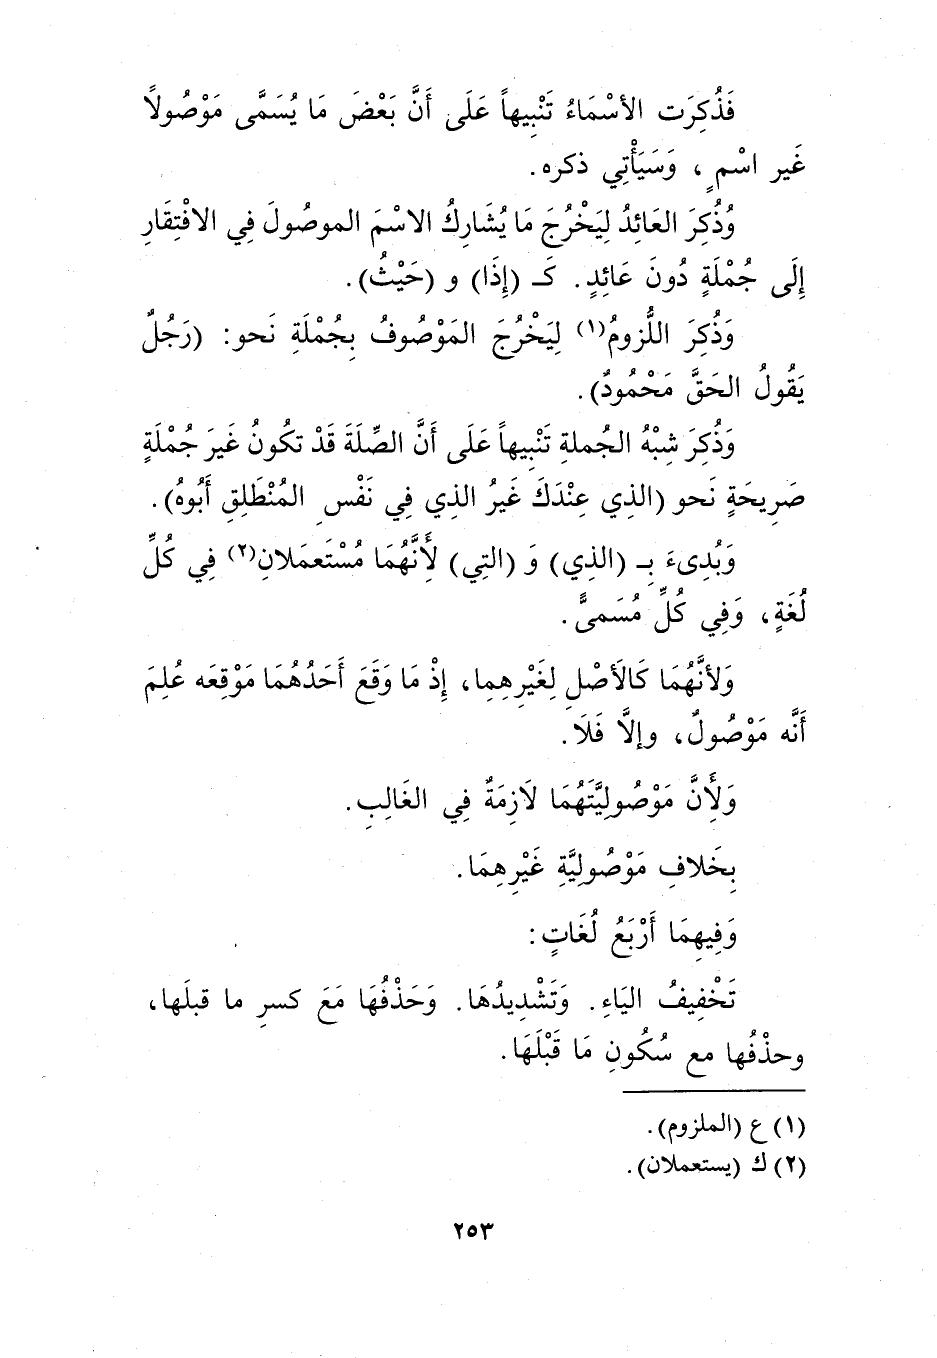 فَذُكِرَت الأسْمَاءُ تَنْبِيهاً عَلَى أَنَّ بَعْضَ مَا يُسَمَّى مَوْصُولاً
غَير اسْمٍ ، وَسَيَأْتِي ذكره.
وُذُكِرَ العَائِدُ لِيَخْرُجَ مَا يُشَارِكُ الاسْمَ الموصُولَ فِي الافْتِقَارِ
إِلَى جُمْلَةٍ دُونَ عَائِدٍ. كَـ (إِذَا) و (حَيْثُ).
وَذُكِرَ اللُّزومُ(١) لِيَخْرُجَ المَوْصُوفُ بِجُمْلَةِ نَحو: (رَجُلٌ
يَقُولُ الحَقَّ مَحْمُودٌ).
وَذُكِرَ شِبْهُ الجُملةِ تَنْبِيهاً عَلَى أَنَّ الصِّلَةَ قَدْ تكُونُ غَيرَ جُمْلَةٍ
صَرِيحَةٍ نَحو (الذي عِنْدَكَ غَيرُ الذي فِي نَفْسِ المُنْطَلِقِ أَبُوهُ).
وَبُدِىءَ بِـ (الذِي) وَ (التِي) لأَنَّهُمَا مُسْتَعمَلانِ(٢) فِي كُلِّ
لُغَةٍ، وَفِي كُلِّ مُسَمىًّ.
وَلأنَّهُمَا كَالأَصْلِ لِغَيْرِهِما، إِذْ مَا وَقَعَ أَحَدُهُمَا مَوْقِعَه عُلِمَ
أَنَّه مَوْصُولٌ، وإلاَّ فَلَا.
وَلأَنَّ مَوْصُولِيَّتَهُمَا لَازِمَةٌ فِي الغَالِبِ.
بِخَلافِ مَوْصُولِيَّةِ غَيْرِهِمَا.
وَفِيهِمَا أَرْبَعُ لُغَاتٍ:
تَخْفِيفُ اليَاءِ. وَتَشْدِيدُهَا. وَحَذْفُهَا مَعَ كسرِ ما قبلَها،
وحذْفُها مع سُكُونِ مَا قَبْلَهَا.
(١) ع (الملزوم).
(٢) ك (يستعملان).
٢٥٣